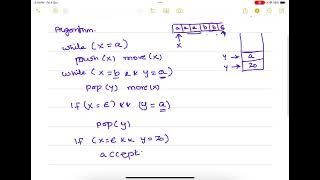 Algorithm:
a a a b b ε
x
while (x = a)
push (x) more (x)
while (x = b && y = a)
pop (y) more (x)
y → a
y → z0
if (x = ε) && (y = a)
pop (y)
if (x = ε && y = z0)
accept.